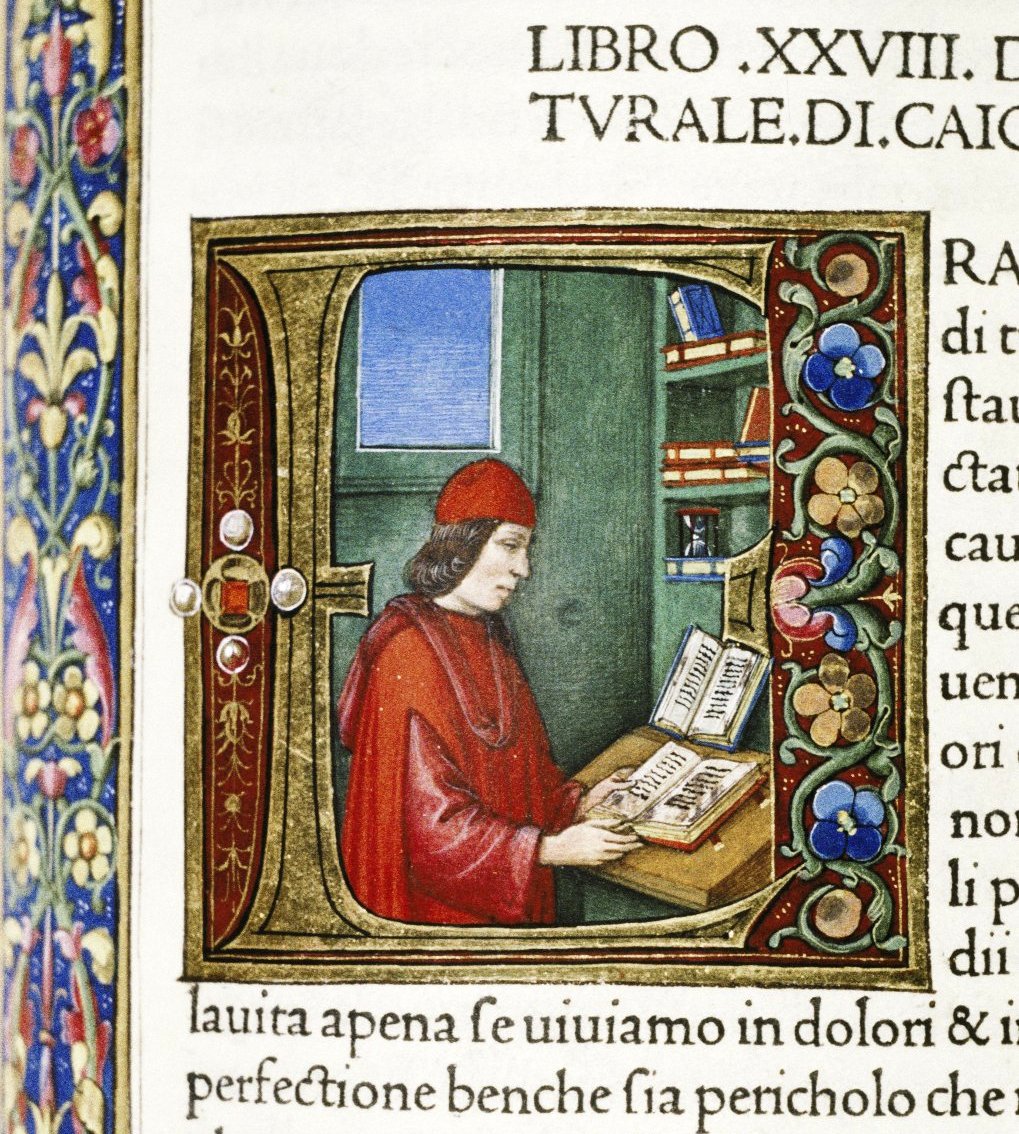 LIBRO .XXVIII. D
TVRALE.DI.CAIO
E RA
di t
ſtau
ctat
cau
que
uen
ori
non
li p
dii
lauita apena ſe uiuiamo in dolori & i
perfectione benche ſia pericholo che